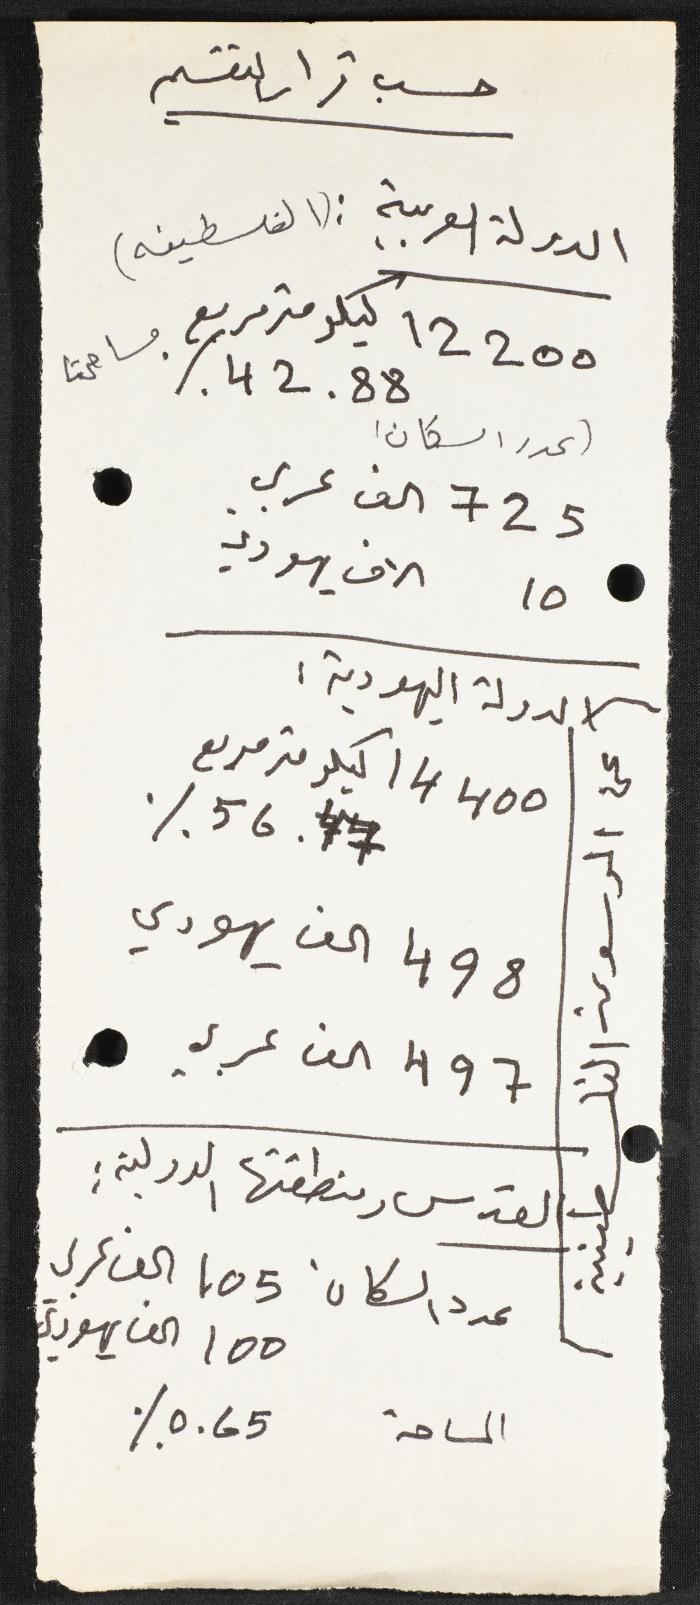 حسب قرار التقسيم
الدولة العربية : (الفلسطينه)
12200 كيلو متر مربع . مساحتها
42.88 ٪
(عدد السكان)
725 الف عربي
10 الاف يهودي
الدولة اليهودية :
14400 كيلو متر مربع
56.47 ٪
498 الف يهودي
497 الف عربي
القدس ومنطقتها الدولية :
عدد السكان 105 الف عربي
100 الف يهودي
المساحة 0.65 ٪
عن الموسوعة الفلسطينية